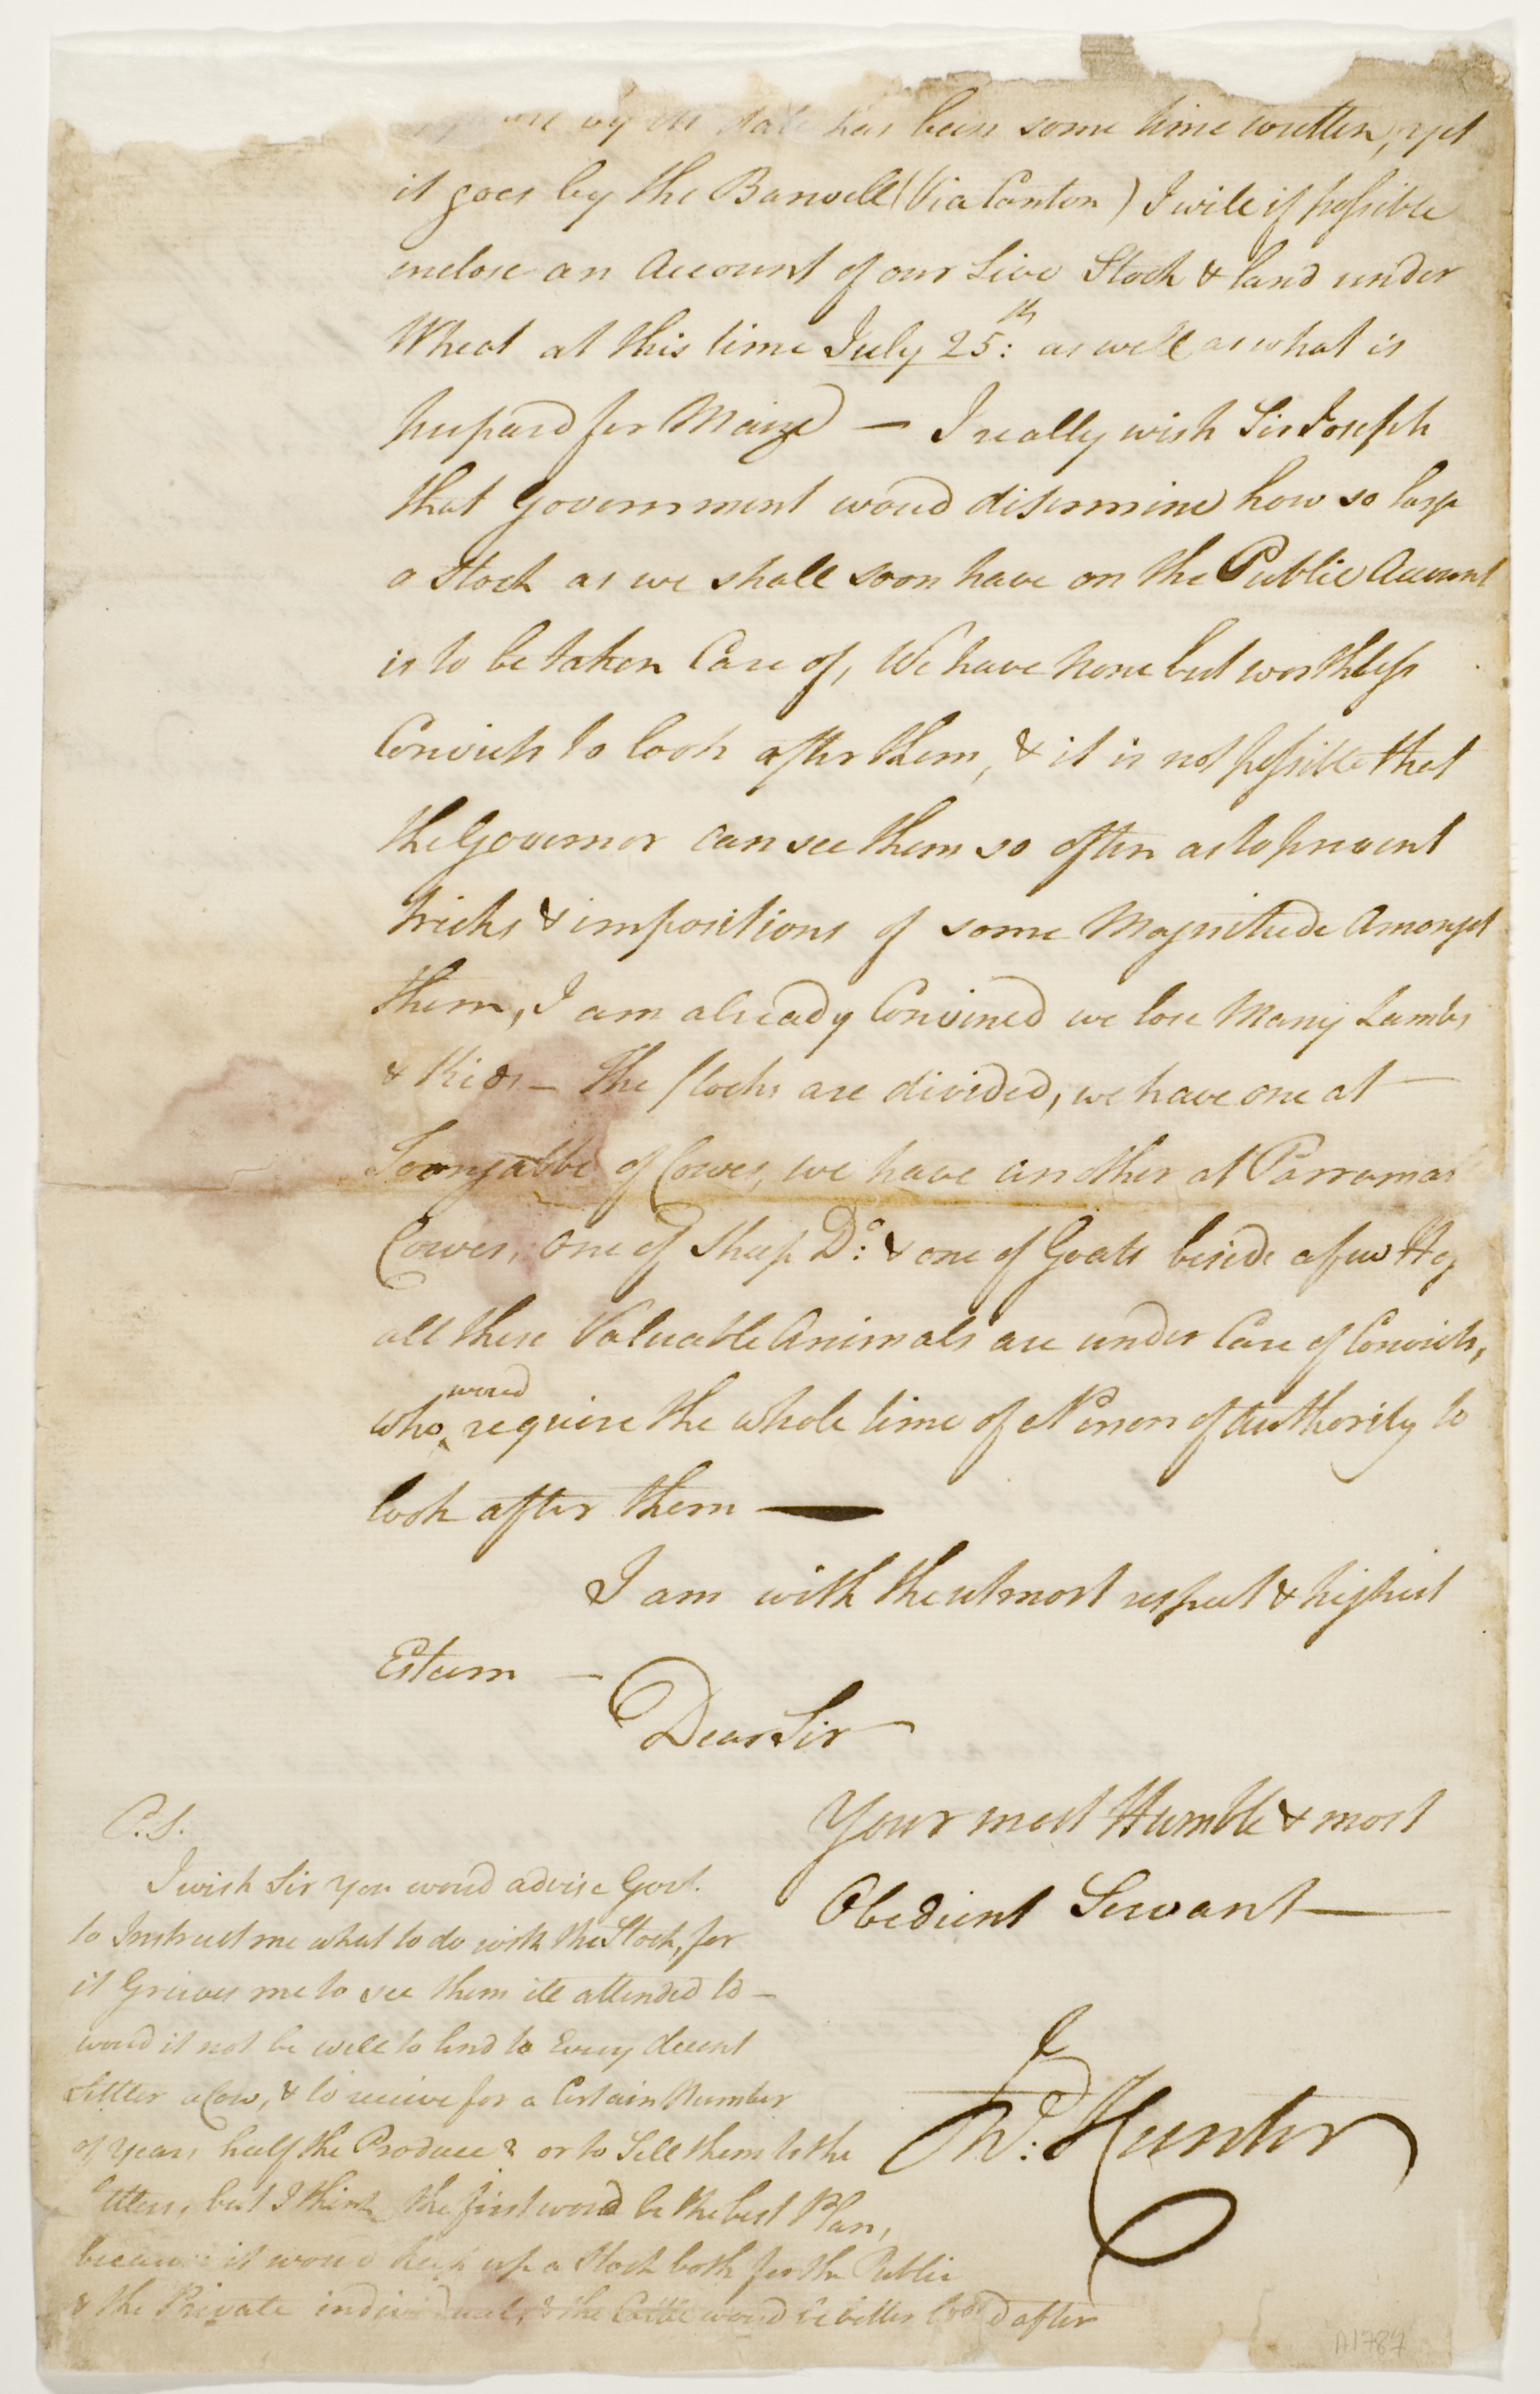 by its date has been some time written, yet
it goes by the Barwell (Via Canton) I will if possible
enclose an Account of our Live Stock & land under
Wheat at this time July 25th: as well as what is
prepard for Maize — I really wish Sir Joseph
that Government woud ditermine how so large
a Stock as we shall soon have on the Public Account
is to be taken Care of, We have none but worthless
Convicts to look after them, & it is not possible that
the Governor can see them so often as to prevent
tricks & impositions of some Magnitude Amongst
them, I am already Convined we lose Many Lambs
& Kids — The flocks are divided, we have one at
Toongabbe of Cowes, we have another at Parramat
Cowes, one of Sheep Do: & one of Goats beside a few Hog
all these Valuable Animals are under Care of Convicts,
who woud require the whole time of a Person of Authority to
look after them —
I am with the utmost respect & highest
Esteem —
Dear Sir
Your most Humble & most
Obedient Servant —
Jno: Hunter
P.S.
I wish Sir you woud advise Govt.
to Instruct me what to do with the Stock, for
it Grieves me to see them ill attended to —
woud it not be well to lend to Every decent
Settler a Cow, & to receive for a Certain Number
of years half the Produce & or to Sell them to the
ettlers, but I think the first woud be the best Plan,
because it woud keep up a Stock both for the Public
& the Private individual, & the Cattle woud be better lookd after
A1787